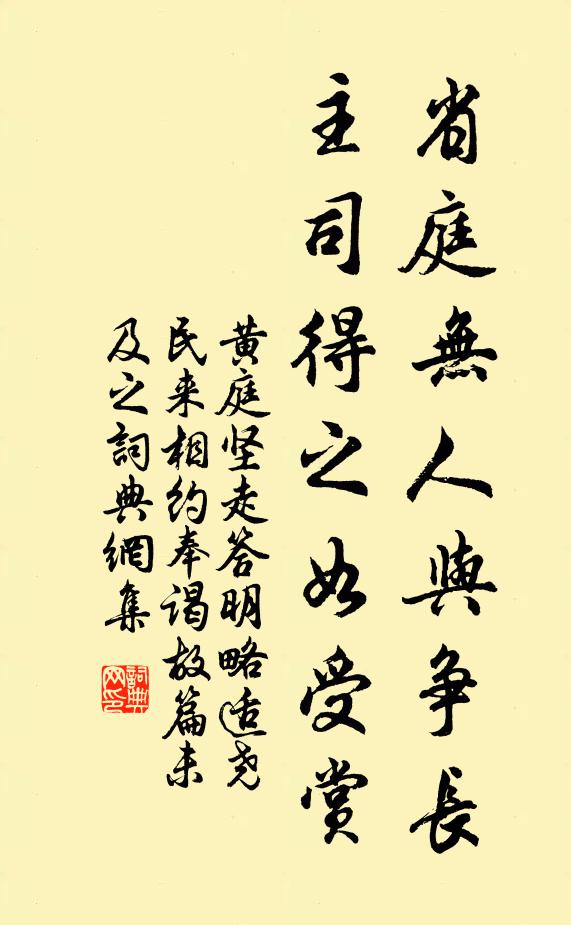 省庭無人與争長
主司得之如受賞
黄庭坚走答明略适尧
民来相约奉谒故篇末
及之詞典網集
詞典
网印